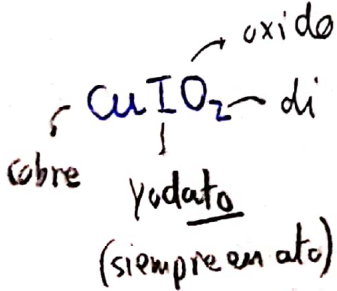 oxido
CuIO₂
di
cobre
yodato
(siempre en ato)